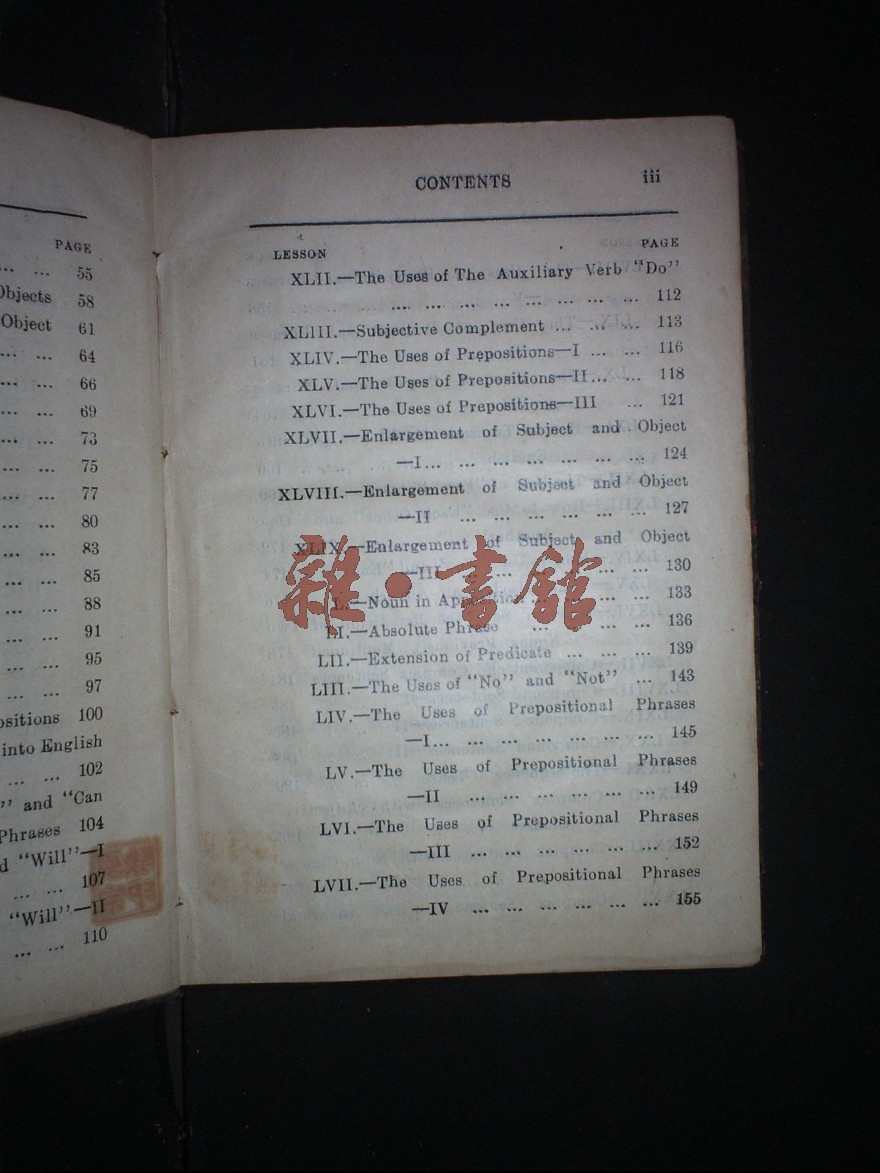 PAGE
... ... 55
Objects 58
Object 61
... ... 64
... ... 66
... ... 69
... ... 73
... ... 75
... ... 77
... ... 80
... ... 83
... ... 85
... ... 88
... ... 91
... ... 95
... ... 97
ositions 100
into English
... ... 102
" and "Can
Phrases 104
d "Will"—I
... ... 107
"Will"—II
... ... 110
CONTENTS iii
LESSON PAGE
XLII.—The Uses of The Auxiliary Verb "Do"
... ... ... ... ... ... ... ... 112
XLIII.—Subjective Complement ... ... ... 113
XLIV.—The Uses of Prepositions—I ... ... 116
XLV.—The Uses of Prepositions—II... ... 118
XLVI.—The Uses of Prepositions—III ... 121
XLVII.—Enlargement of Subject and Object
—I... ... ... ... ... ... ... 124
XLVIII.—Enlargement of Subject and Object
—II ... ... ... ... ... ... 127
XLIX.—Enlargement of Subject and Object
—III ... ... ... ... ... 130
L.—Noun in Apposition ... ... ... ... 133
LI.—Absolute Phrase ... ... ... ... 136
LII.—Extension of Predicate ... ... ... 139
LIII.—The Uses of "No" and "Not" ... 143
LIV.—The Uses of Prepositional Phrases
—I... ... ... ... ... ... ... 145
LV.—The Uses of Prepositional Phrases
—II ... ... ... ... ... ... 149
LVI.—The Uses of Prepositional Phrases
—III ... ... ... ... ... ... 152
LVII.—The Uses of Prepositional Phrases
—IV ... ... ... ... ... ... 155
雜·書館